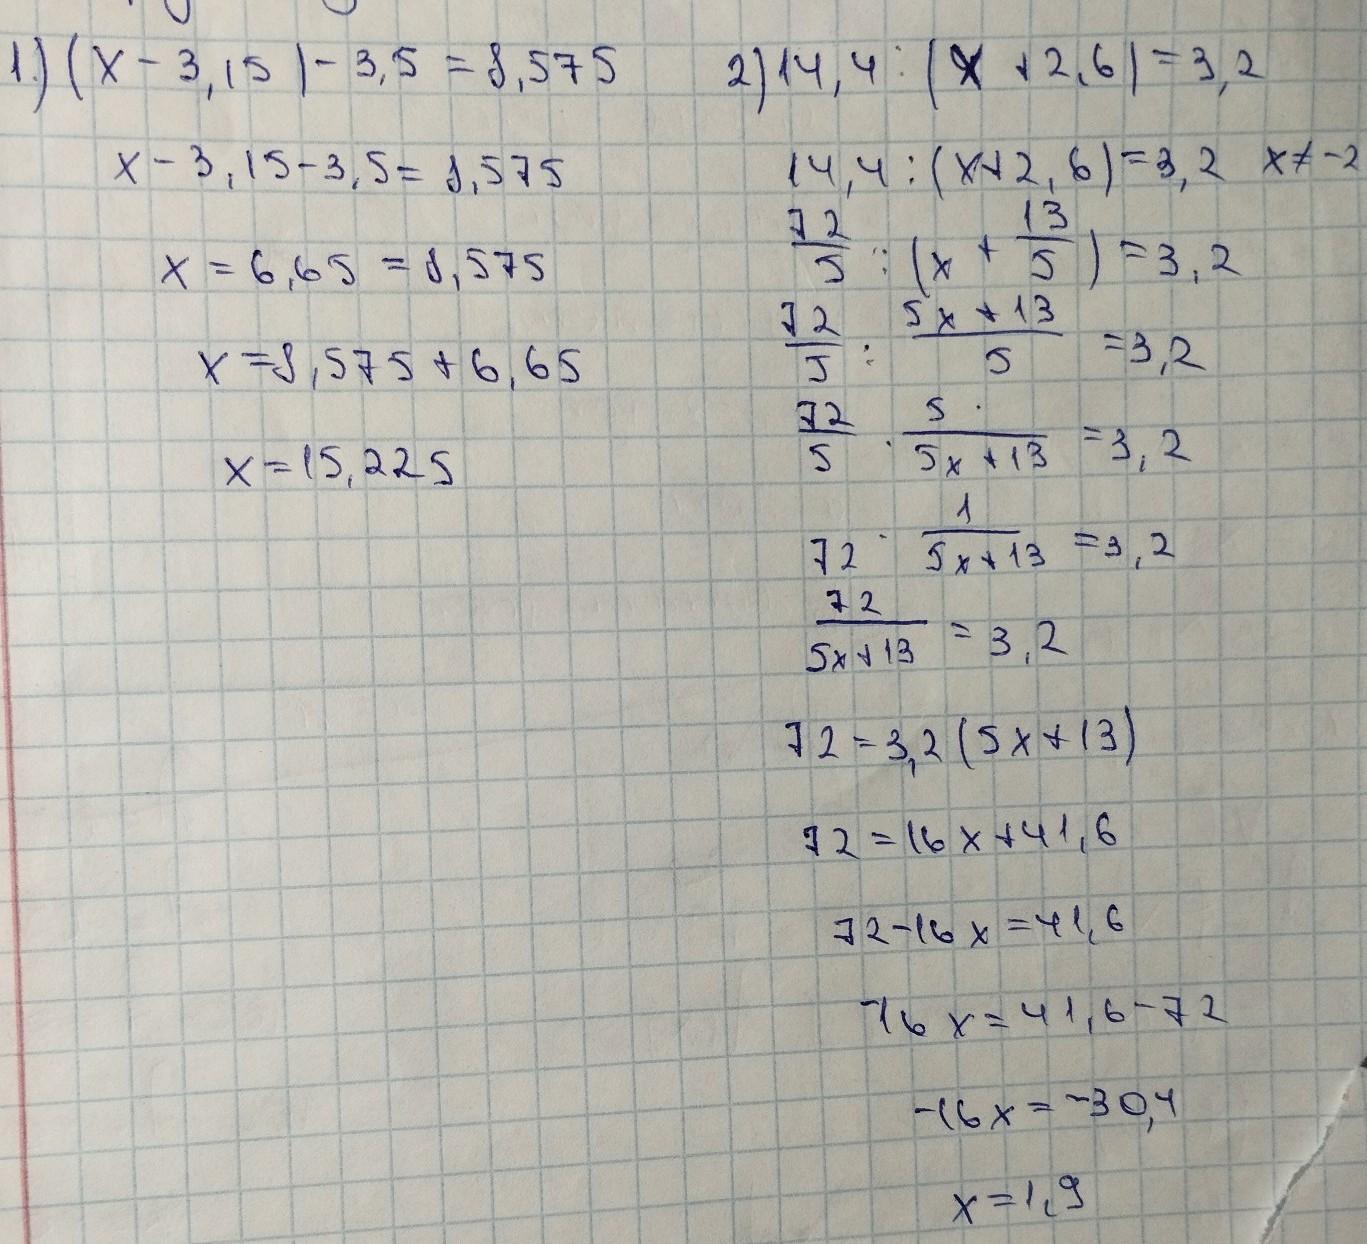 1.) (x - 3,15) - 3,5 = 8,575
x - 3,15 - 3,5 = 8,575
x = 6,65 = 8,575
x = 8,575 + 6,65
x = 15,225
2) 14,4 : (x + 2,6) = 3,2
14,4 : (x + 2,6) = 3,2 x ≠ -2
72/5 : (x + 13/5) = 3,2
72/5 : (5x + 13)/5 = 3,2
72/5 · 5/(5x + 13) = 3,2
72 · 1/(5x + 13) = 3,2
72/(5x + 13) = 3,2
72 = 3,2 (5x + 13)
72 = 16x + 41,6
72 - 16x = 41,6
-16x = 41,6 - 72
-16x = -30,4
x = 1,9